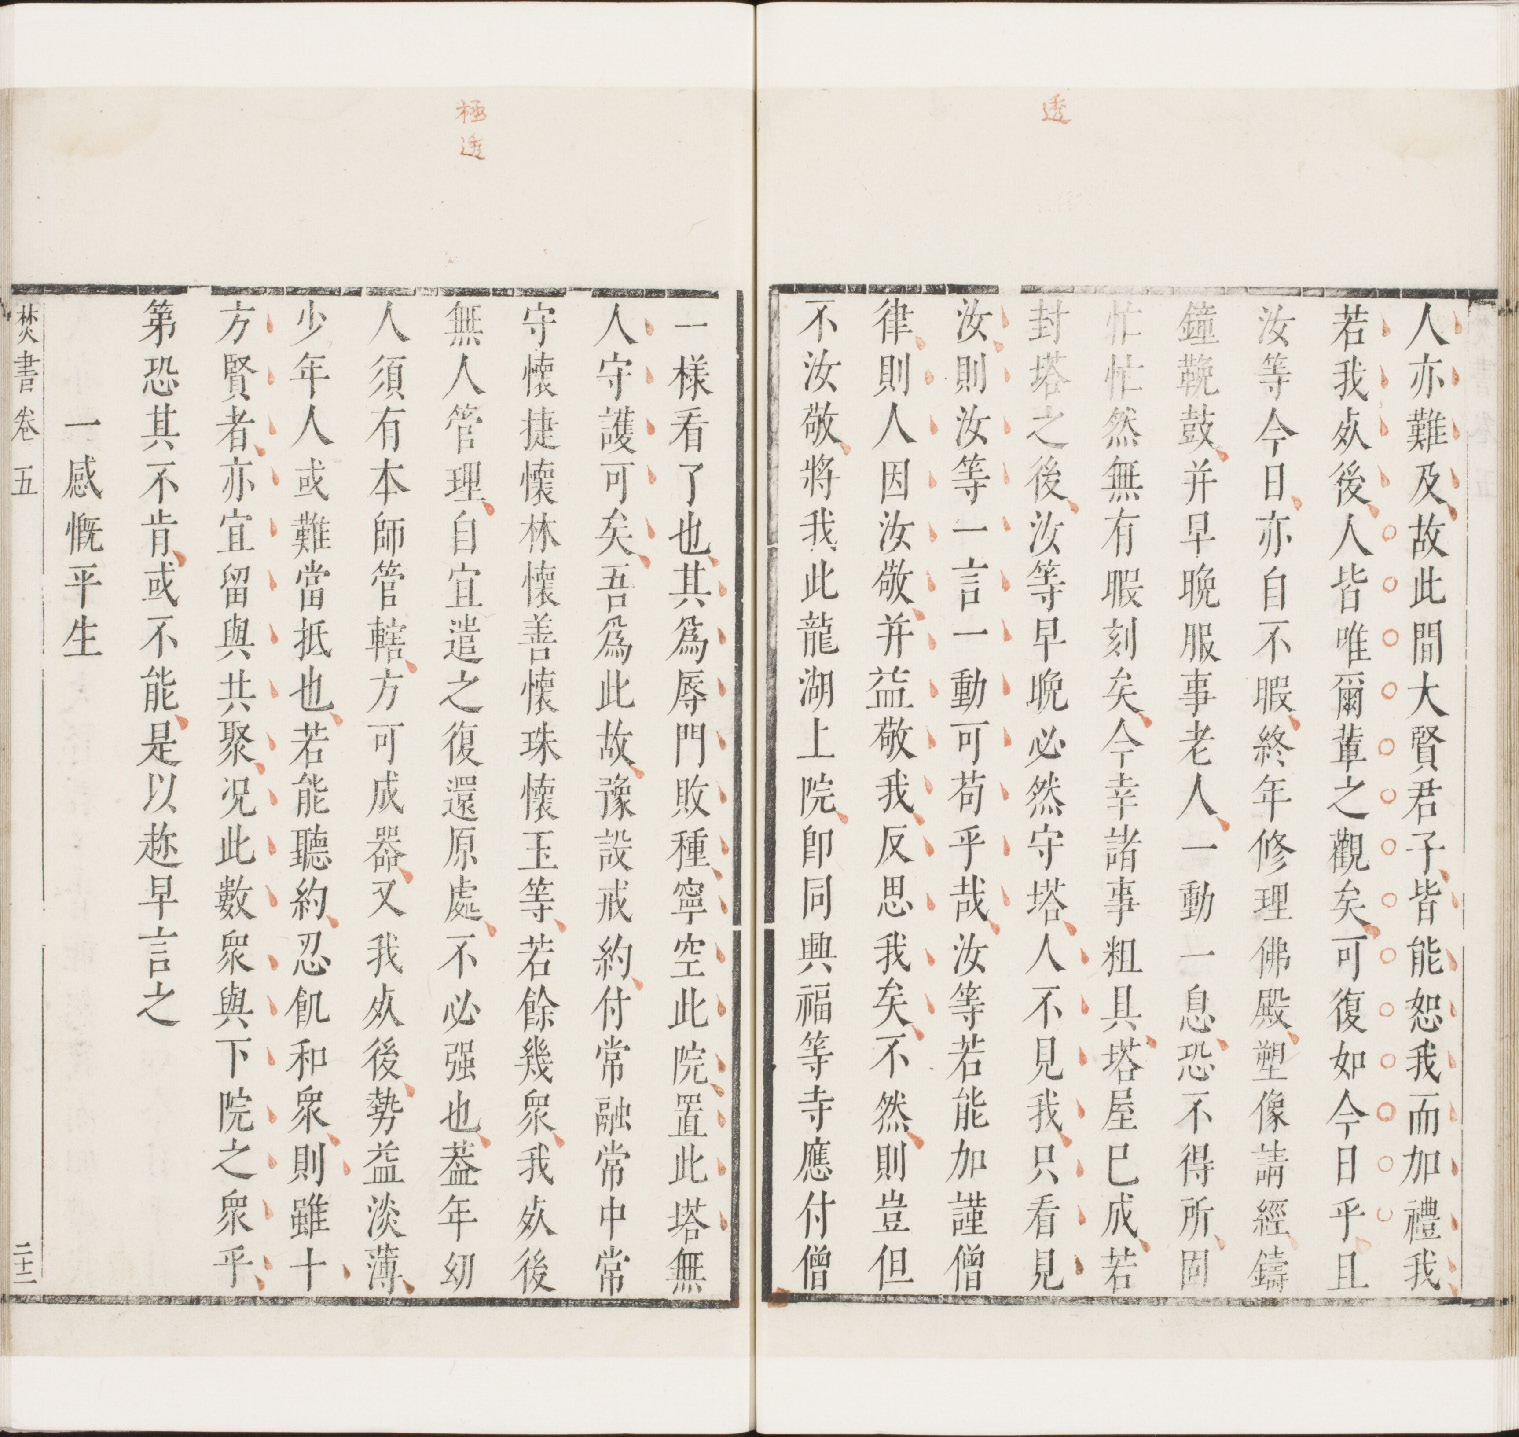 透
人亦難及故此間大賢君子皆能恕我而加禮我
若我㱔後人皆唯爾輩之觀矣可復如今日乎且
汝等今日亦自不暇終年修理佛殿塑像請經鑄
鐘鞔鼓并早晚服事老人一動一息恐不得所固
忙忙然無有暇刻矣今幸諸事粗具塔屋已成若
封塔之後汝等早晚必然守塔人不見我只看見
汝則汝等一言一動可苟乎哉汝等若能加謹僧
律則人因汝敬并益敬我反思我矣不然則豈但
不汝敬將我此龍湖上院卽同興福等寺應付僧
極透
一樣看了也其爲辱門敗種寧空此院置此塔無
人守護可矣吾爲此故豫設戒約付常融常中常
守懷捷懷林懷善懷珠懷玉等若餘幾衆我㱔後
無人管理自宜遣之復還原處不必强也葢年幼
人須有本師管轄方可成器又我㱔後勢益淡薄
少年人或難當抵也若能聽約忍飢和衆則雖十
方賢者亦宜留與共聚况此數衆與下院之衆乎
第恐其不肯或不能是以趂早言之
一感慨平生
焚書卷五
二十二